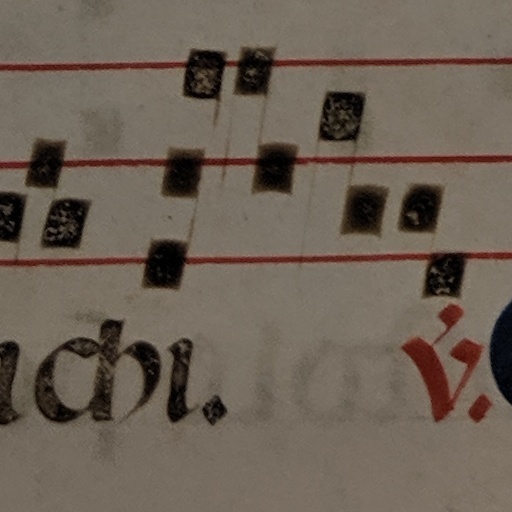 chi. V.